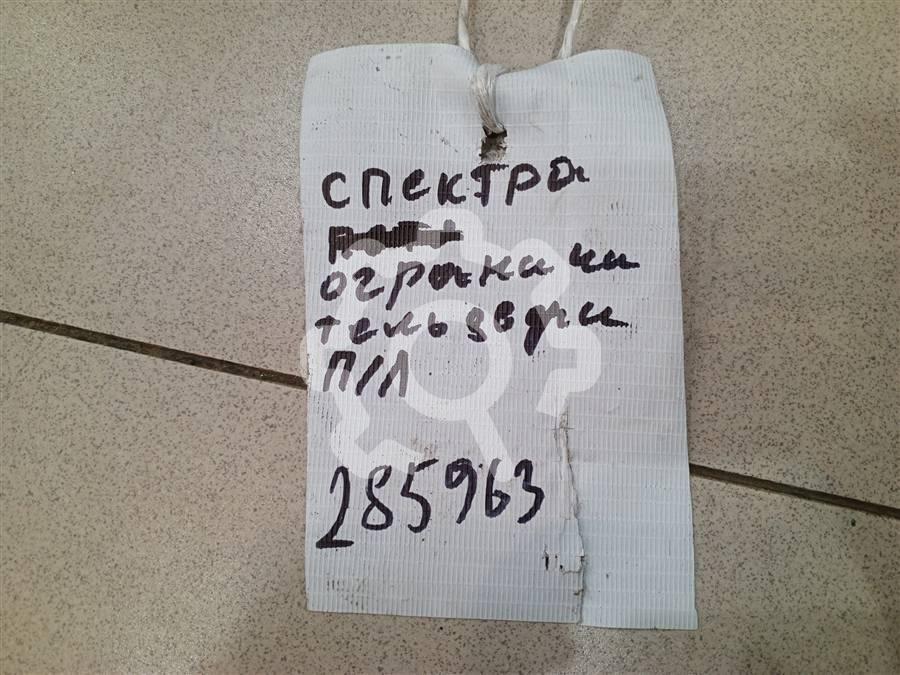 спектра
ограничи
тель двери
П/Л
285963